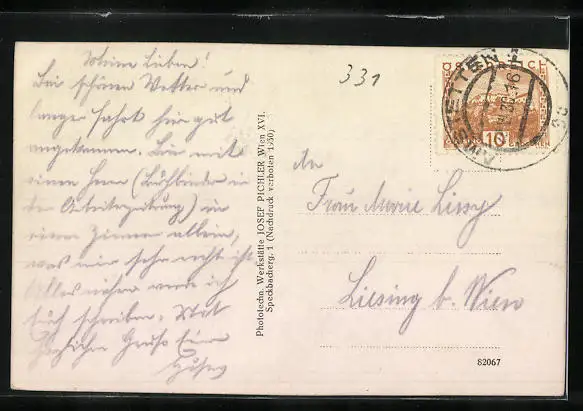 Meine Lieben!
Bei schönen Wetter und
langer fahrt hier gut
angekommen. Bin mit
einen Herrn (Buchbinder in
der Arbeiterzeitung) in
einem Zimmer allein,
was mir sehr recht ist
Alles nähere werde ich
Euch schreiben. Mit
Herzlichen Gruß Euer
331
Phototechn. Werkstätte JOSEF PICHLER Wien XVI.
Speckbacherg. 1 (Nachdruck verboten 1930)
ÖSTERREICH
10
AMSTETTEN
An
Frau Marie Lissy
Liesing b. Wien
82067